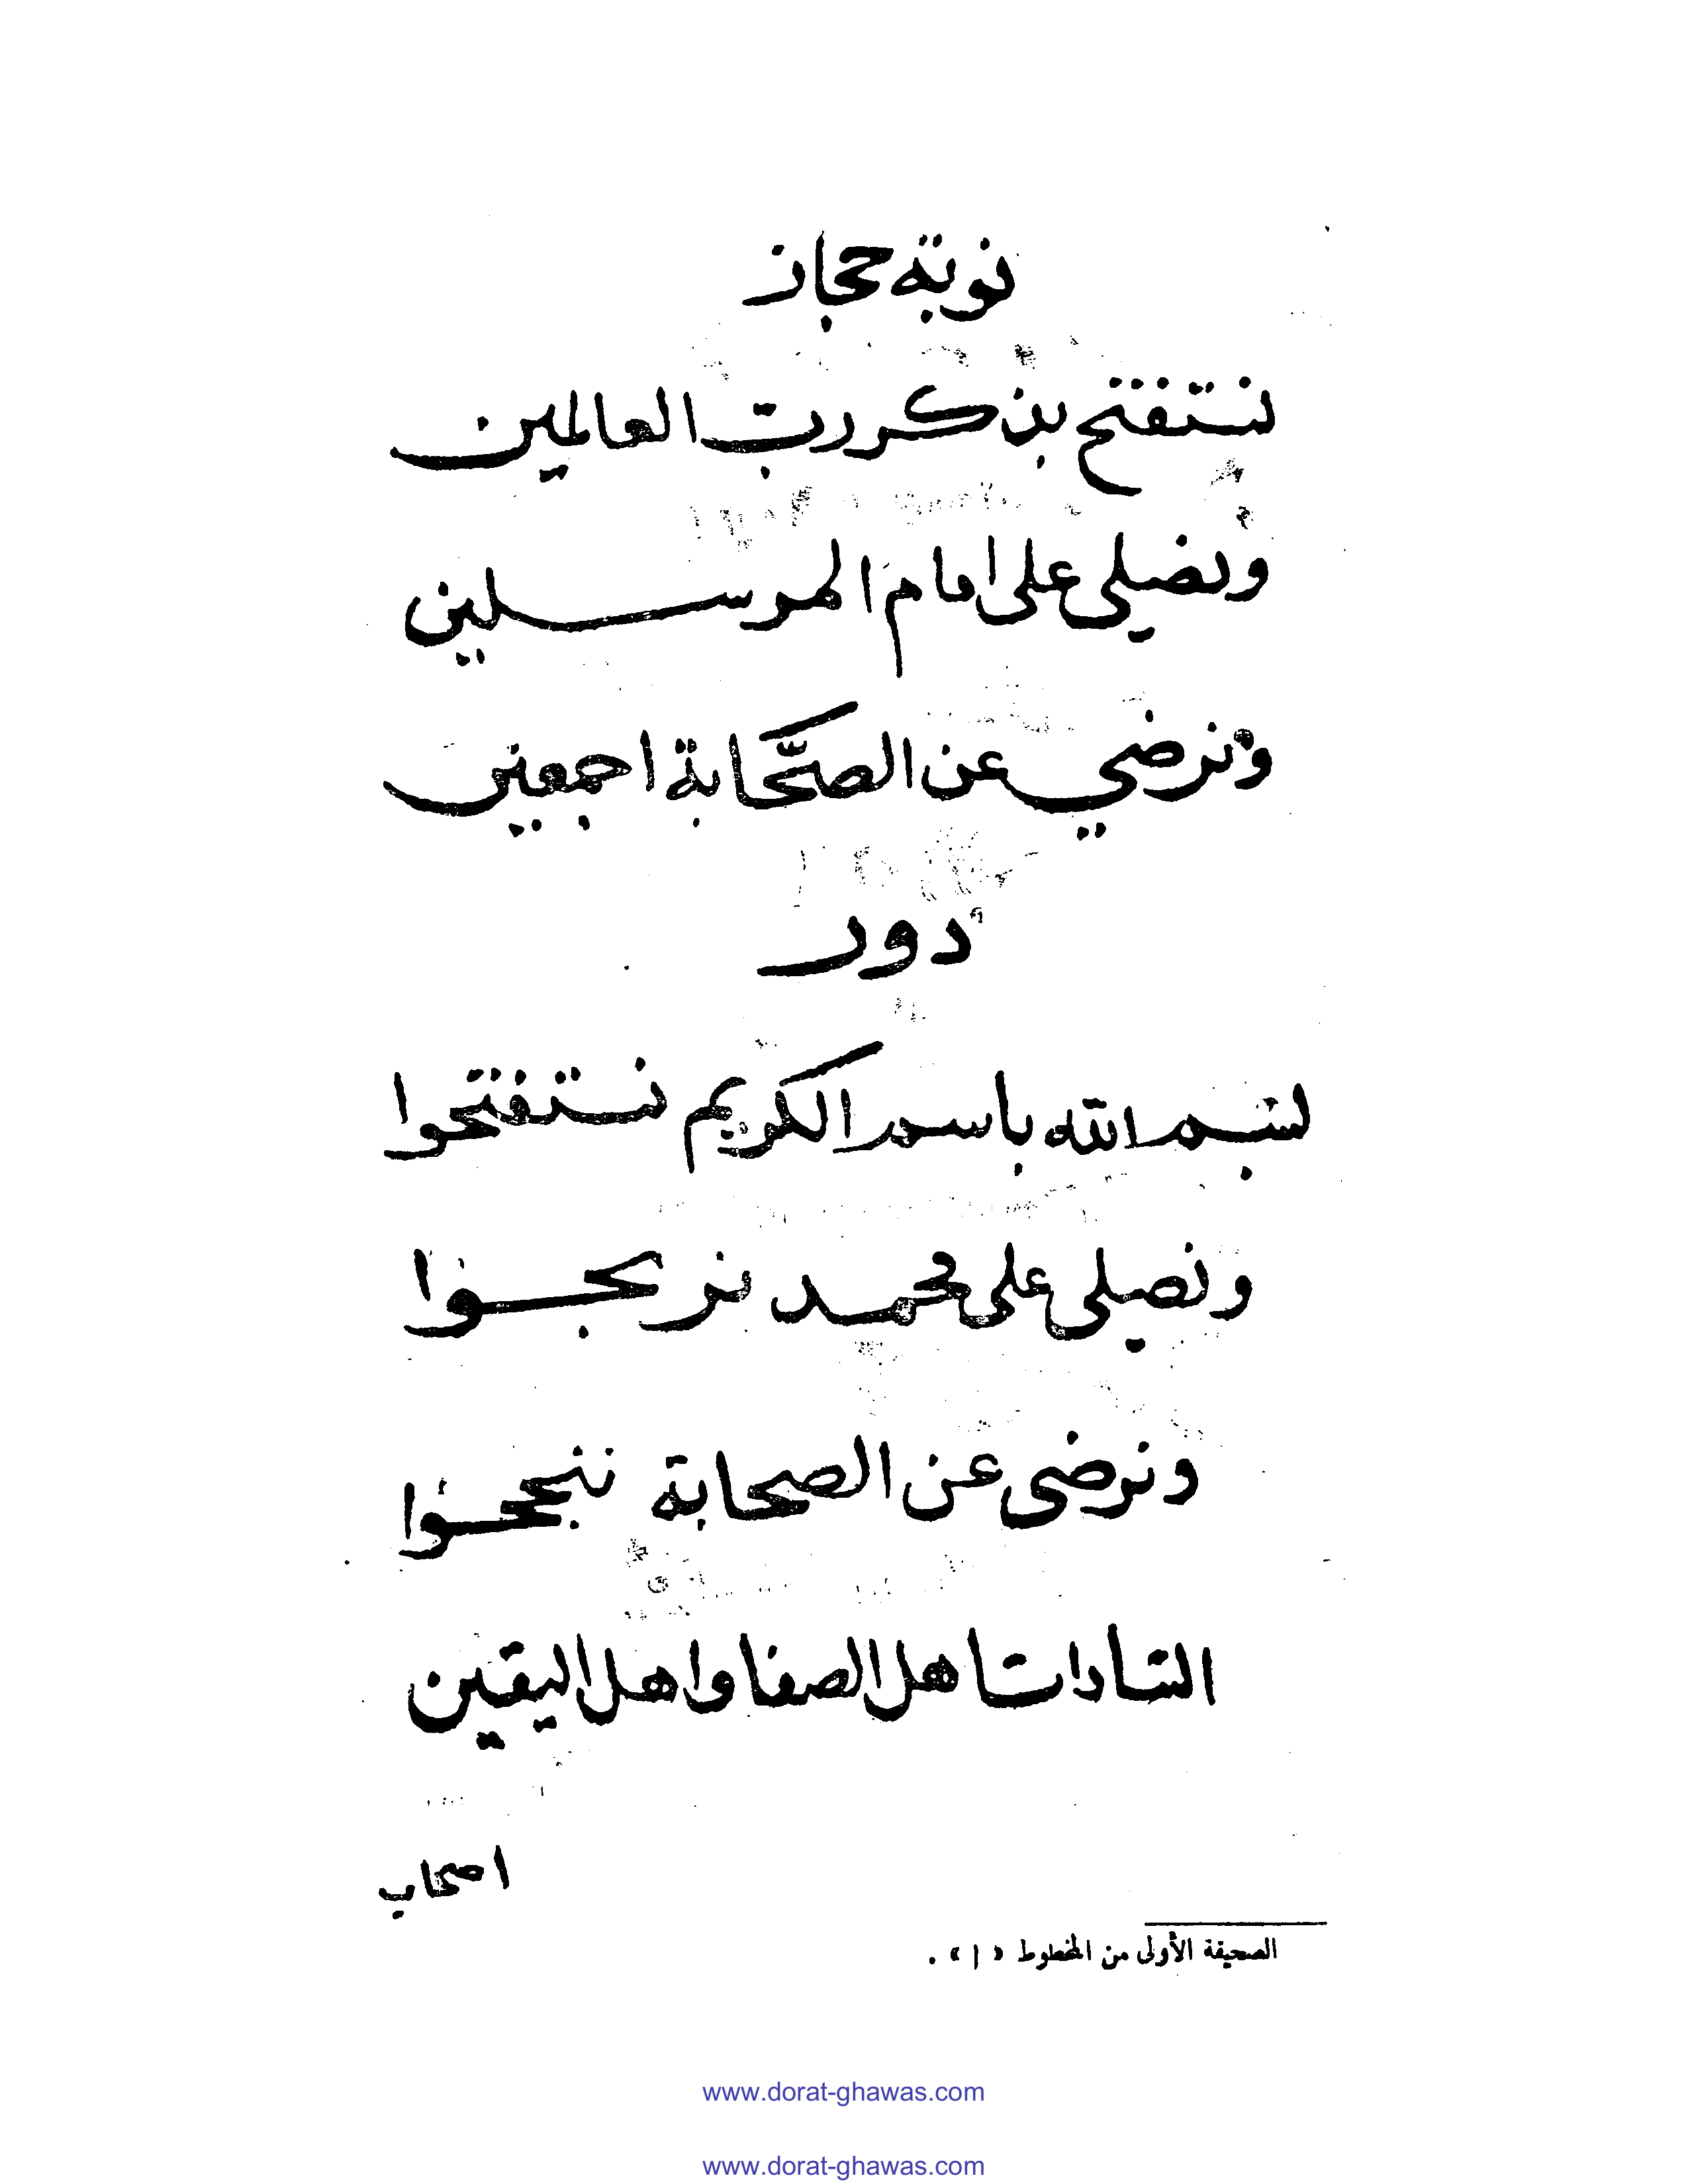 نوبة حجاز
نستفتح بذكر ربّ العالمين
ونصلي على امام المرسلين
ونرضي عن الصّحابة اجمعين
دور
بسم الله باسم الكريم نستفتحوا
ونصلي على محمد نربحوا
ونرضى عن الصحابة ننجحوا
السادات اهل الصفا واهل اليقين
اصحاب
الصحيفة الأولى من المخطوط « ا » .
www.dorat-ghawas.com
www.dorat-ghawas.com